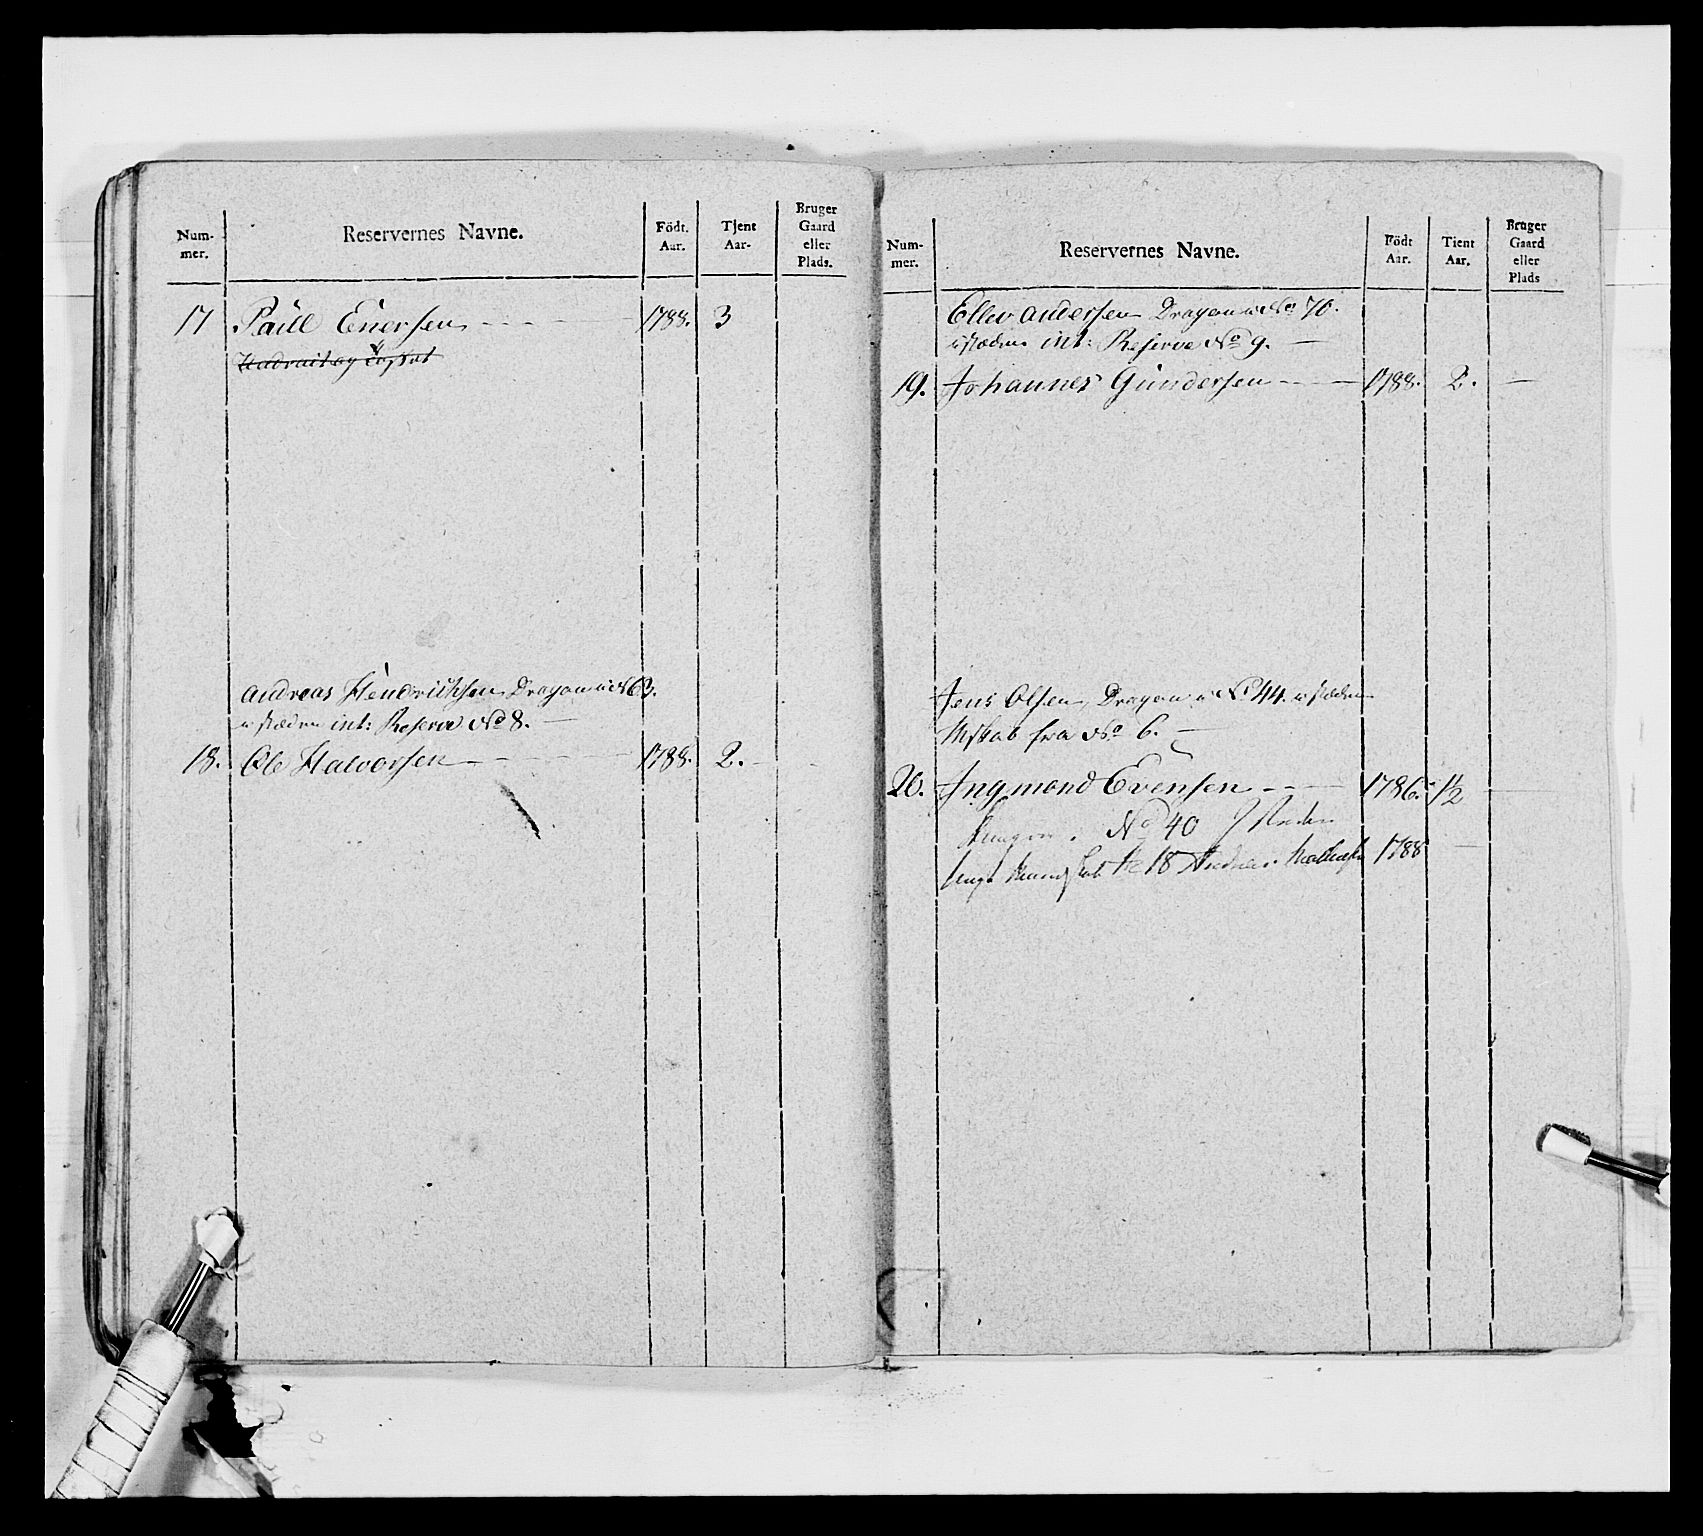 Num-
mer.
Reservernes Navne.
Födt.
Aar.
Tjent
Aar.
Bruger
Gaard
eller
Plads.
17 Paül Enersen 1788. 3
Andreas Hendrichsen Dragon No 63.
i stæden int: Reserve No 8.
18. Ole Halvorsen 1788. 2.
Num-
mer.
Reservernes Navne.
Födt
Aar.
Tient
Aar.
Bruger
Gaard
eller
Plads
Ellev Andersen Dragon No 70.
i stæden int: Reserve No 9.
19. Johannes Gündersen 1788. 2.
Jens Olsen, Dragon No 44. i stæden
Mskab fra No 6.
20. Ingmond Evensen 1786. 1½
No 40 I steden
unge Mandskab No 18 1788